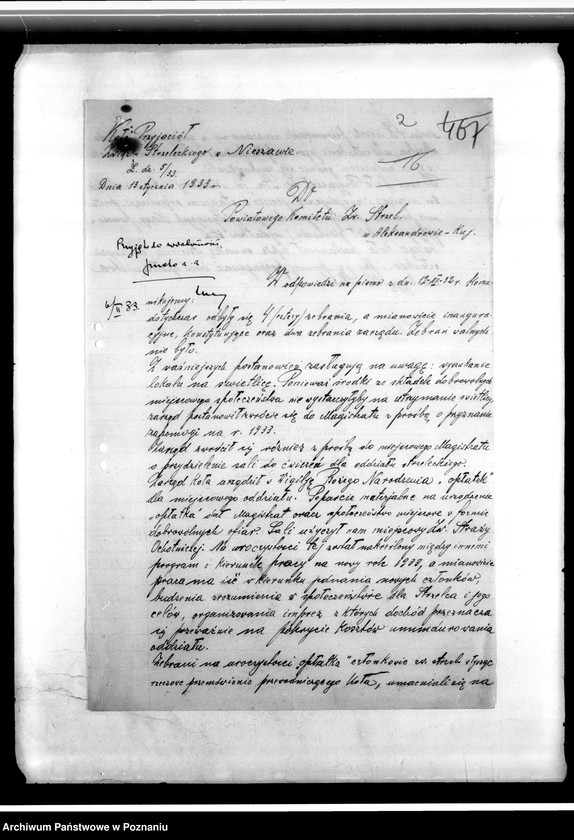 2
467
16
Koło Przyjaciół
Związku Strzeleckiego w Nieszawie
L. dz. 5/33.
Dnia 13 stycznia 1933.-
Do
Powiatowego Komitetu Zw. Strzel.
w Aleksandrowie-Kuj.
Przyjęto do wiadomości
a.a.
6/II 33
W odpowiedzi na pismo z dn. 12-XII-32 r. Komu-
nikujemy:
dotychczas odbyły się 4/cztery/zebrania, a mianowicie inaugura-
cyjne, konstytujące oraz dwa zebrania zarządu. Zebrań walnych
nie było.
Z ważniejszych postanowień zasługują na uwagę: wyszukanie
lokalu na świetlicę. Ponieważ środki ze składek dobrowolnych
miejscowego społeczeństwa nie wystarczyłyby na utrzymanie świetlicy,
zarząd postanowił zwrócić się do Magistratu z prośbą o przyznanie
zapomogi na r. 1933.
Zarząd zwrócił się również z prośbą do miejscowego Magistratu
o przydzielenie sali do ćwiczeń dla oddziału strzeleckiego.
Zarząd Koła urządził w Wigilję Bożego Narodzenia "opłatek"
dla miejscowego oddziału. Poparcie materjalne na urządzenie
"opłatka" dał Magistrat oraz społeczeństwo miejscowe w formie
dobrowolnych ofiar. Sali użyczył nam miejscowy Zw. Straży
Ochotniczej. Na uroczystości tej został nakreślony między innemi
program i kierunek pracy na nowy rok 1933, a mianowicie
praca ma iść w kierunku jednania nowych członków,
budzenia zrozumienia w społeczeństwie dla Strzelca i jego
celów, organizowania imprez z których dochód przeznacza
się przeważnie na pokrycie kosztów umundurowania
oddziału.
Zebrani na uroczystości opłatka" członkowie zw. strzel. słysząc
rzeczowe przemówienie przewodniczącego Koła, umacniali się na
Archiwum Państwowe w Poznaniu